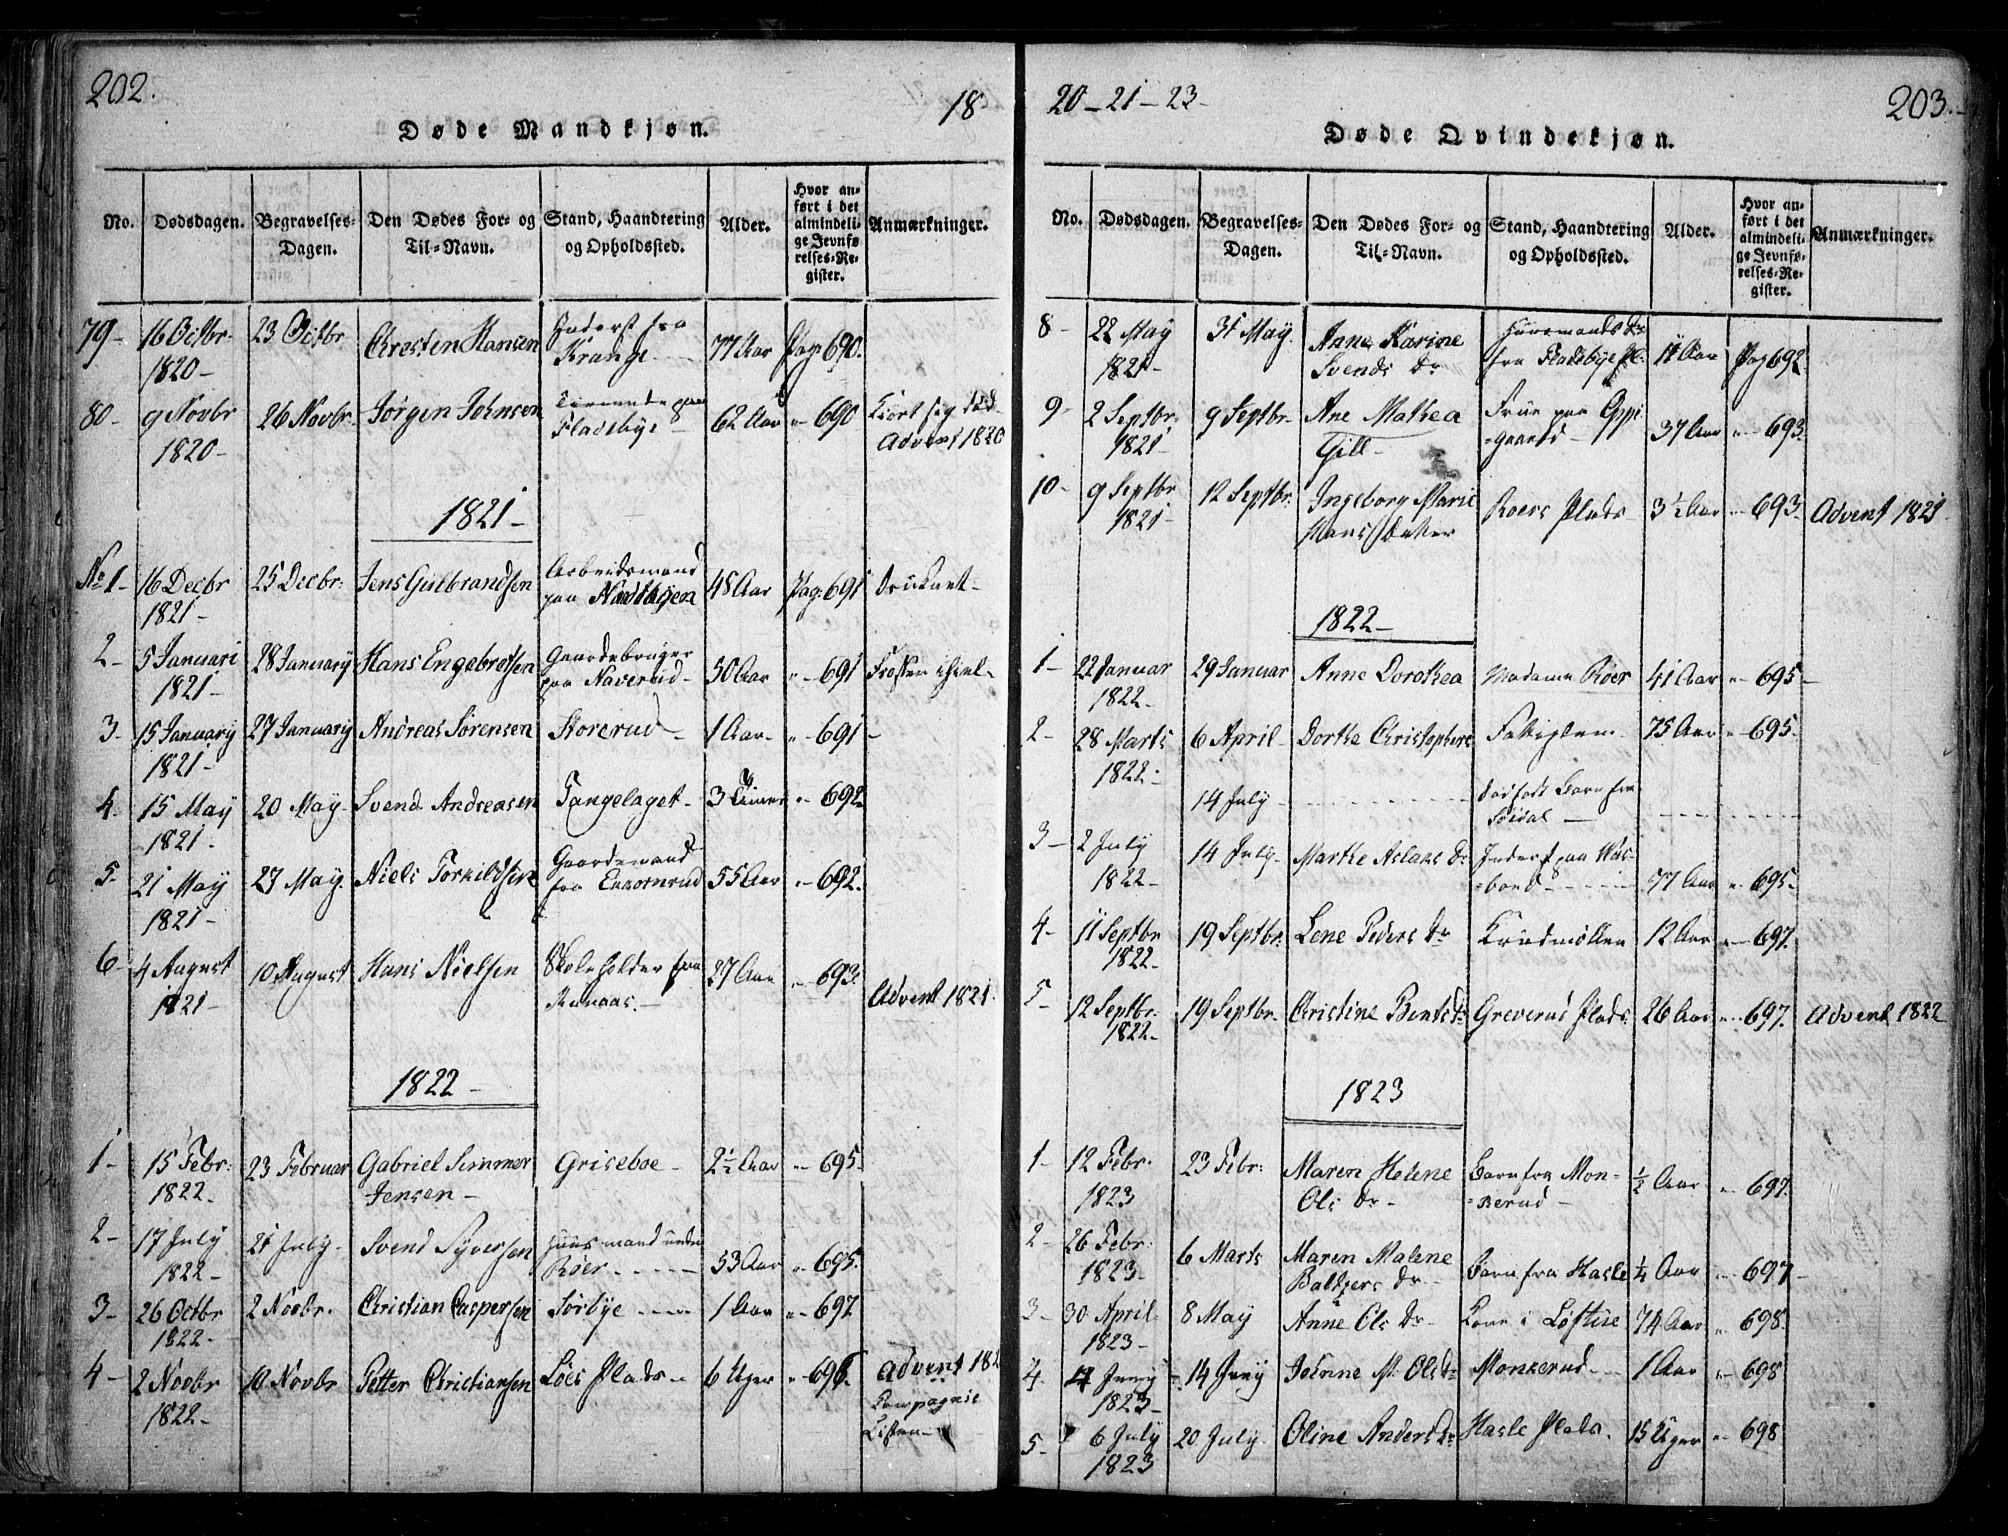 202.
18
Døde Mandkjøn.
No. Dødsdagen. Begravelses-Dagen. Den Dødes For- og Til-Navn. Stand, Haandtering og Opholdssted. Alder. Hvor anført i det almindelige Jevnførelses-Register. Anmærkninger.
79- 16 Octbr. 1820- 23 Octbr. Chresten Hansen Inderst fra Krange 77 Aar Pag: 690.
80- 9 Novbr 1820- 26 Novbr. Jörgen Johnsen Fladebye 62 Aar " 690 Advent 1820
1821-
No 1- 16 Decbr 1821- 25 Decbr: Jens Gulbrandsen Arbeidsmand paa 48 Aar Pag: 691 Druknet-
2- 5 Januari 1821- 28 January Hans Engebretsen Gaardebruger paa Naverud- 50 Aar " 691 Frossen ihiel-
3- 15 January 1821- 27 January Andreas Sørensen Storerud- 1 Aar- " 691-
4. 15 May 1821. 20 May- Svend Andreasen Tangelaget- 3 Timer " 692.
5- 21 May 1821- 27 May. Niels Torkildsen Gaardemand fra Ekkornrud 55 Aar " 692.
6- 4 August 1821- 10 August Hans Nielsen Skoleholder fra 27 Aar " 693. Advent 1821.
1822-
1- 15 Febr: 1822- 23 Februar Gabriel Simmer Jensen- Griseboe- 2½ Aar " 695-
2- 17 July 1822- 21 July- Svend Syversen Huusmand under Röer 53 Aar " 695.
3- 26 Octbr 1822- 2 Novbr. Christian Caspersen Sørbye 1 Aar " 697
4- 2 Novbr 1822- 10 Novbr Petter Christiansen Löes Plads- 6 Uger " 696. Advent 182
Compagnie Listen-
20-21-23-
203.
Døde Qvindekjøn.
No. Dødsdagen. Begravelses-Dagen. Den Dødes For- og Til-Navn. Stand, Haandtering og Opholdssted. Alder. Hvor anført i det almindelige Jevnførelses-Register. Anmærkninger.
8- 22 May 1821- 31 May. Anne Karine Svends Dr Huusmands Dr fra Fladebye Pl. 11 Aar Pag 692.
9- 2 Septbr. 1821- 9 Septbr. Ane Mathea Gill- Frue paa Oppigaard- 37 Aar " 693.
10- 9 Septbr 1821- 12 Septbr. Ingeborg Marie Hans Datter Roers Plads- 3½ Aar " 693. Advent 1821
1822-
1- 22 Januar 1822. 29 Januar Anne Dorothea Madame Röer 41 Aar " 695-
2- 28 Marts 1822- 6 April- Dorthe Christophers 75 Aar " 695.
14 July- dødfødt Barn fra
3- 2 July 1822- 14 July. Marthe Aslaks Dr Inderst paa 77 Aar " 695-
4- 11 Septbr 1822- 19 Septbr. Lene Peders Dr Krudmøllen 12 Aar " 697.
5- 12 Septbr. 1822- 19 Septbr. Christine Bentsdr Greverud Plads. 26 Aar " 697. Advent 1822
1823
1- 12 Febr. 1823 23 Febr: Maren Helene Ols Dr- Barn fra Monkerud- ½ Aar- " 697.
2- 26 Febr. 1823- 6 Marts Maren Malene Baltzers Dr- Barn fra Hasle ¼ Aar " 697-
3- 30 April 1823- 8 May Anne Ols Dr- Kone i Løftue 74 Aar " 698.
4 4 Juny 1823- 14 Juny Johnne M. Olsdr Monkerud- 1 Aar " 698
5- 6 July 1823 20 July- Oline Andersdr Hasle Plads. 15 Uger " 698